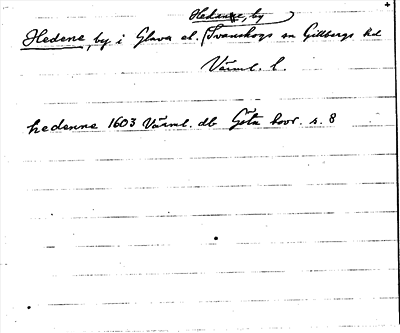 Hedane, by
Hedene, by i Glava el. (Svanskogs sn Gillbergs hd
Värml. l.
hedenne 1603 Värml. db Göta hovr. s. 8